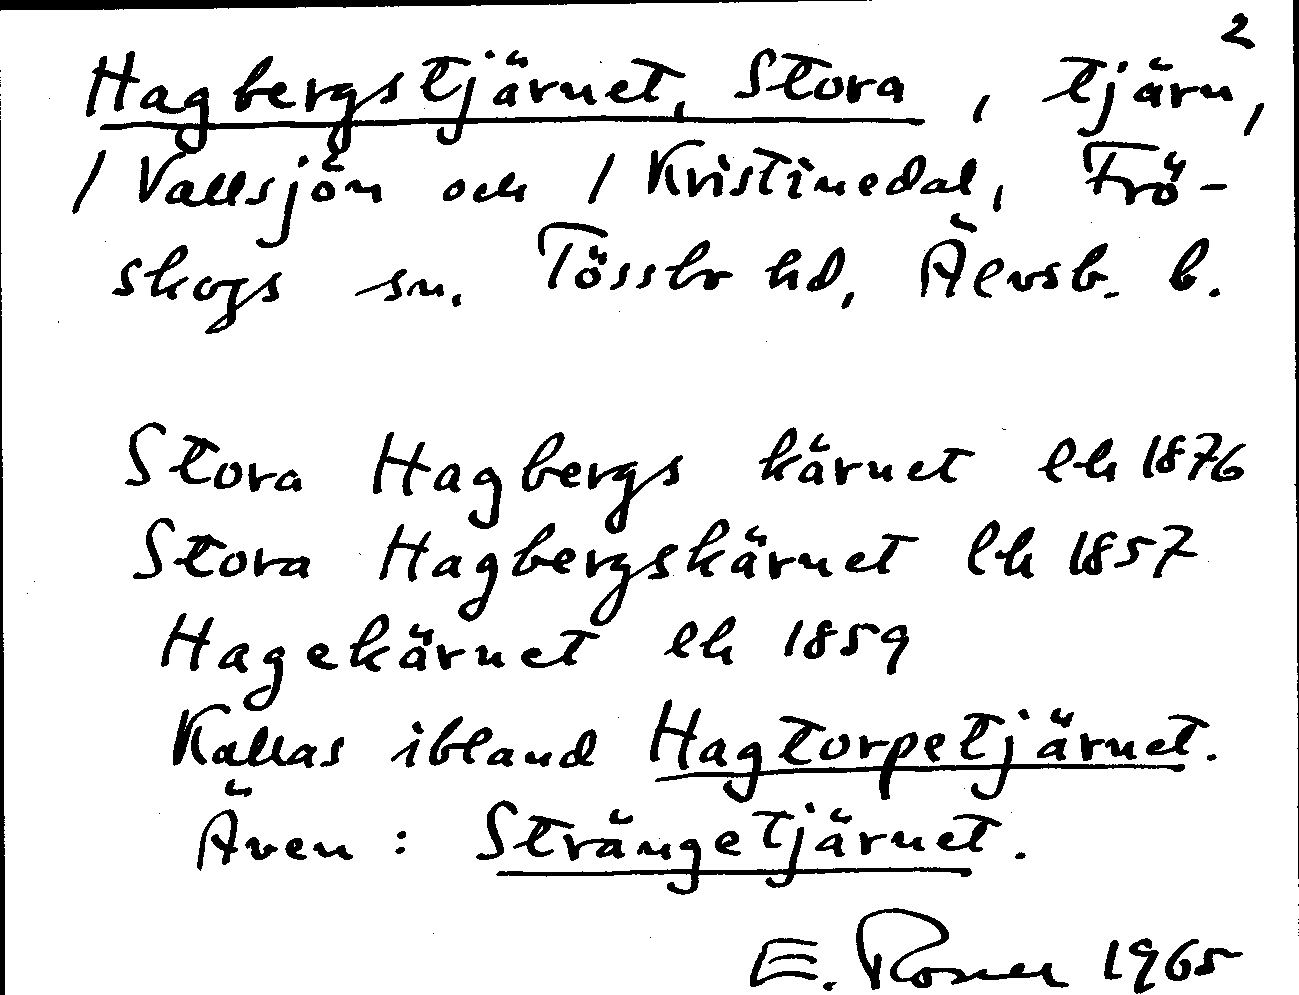 2
Hagbergstjärnet, Stora , tjärn,
/ Vallsjön och / Kristinedal, Frö-
skogs sn. Tössbo hd, Älvsb. l.
Stora Hagbergs kärnet lh 1876
Stora Hagbergskärnet lh 1857
Hagekärnet lh 1859
Kallas ibland Hagtorpetjärnet.
Även : Strängetjärnet.
E. Rosell 1965